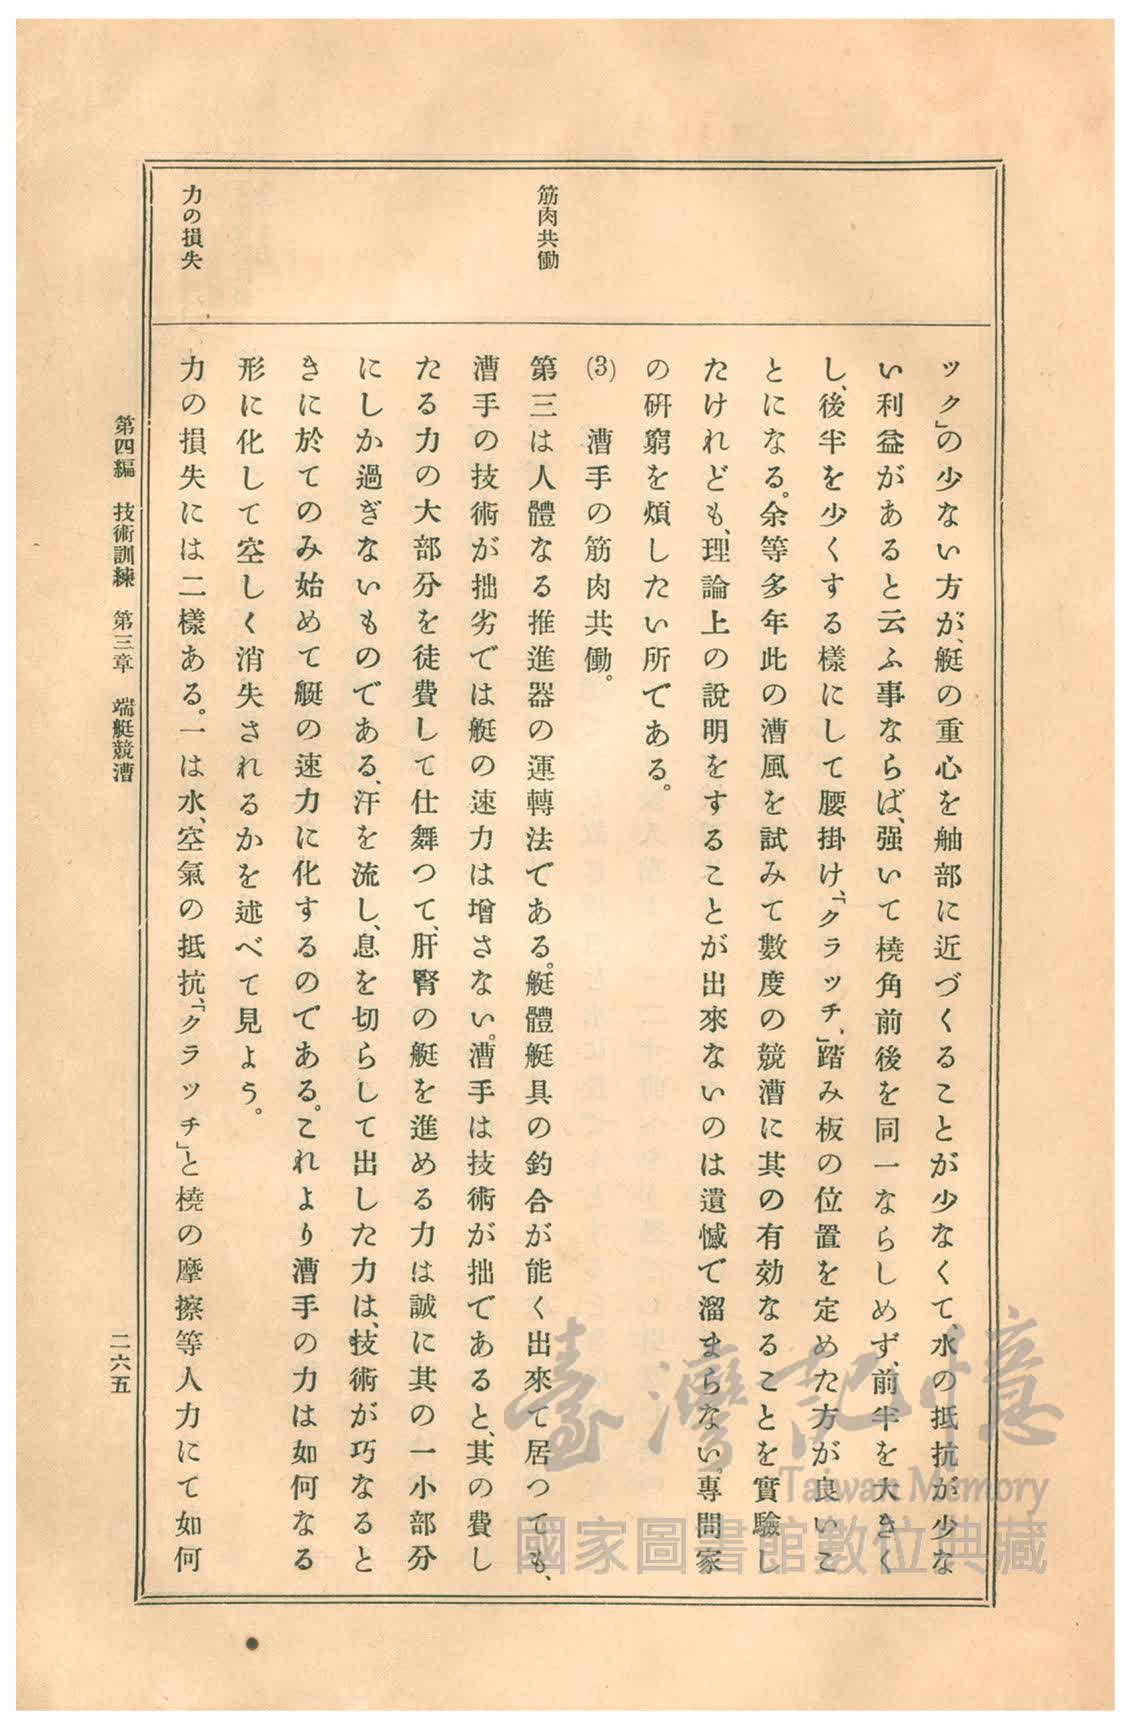 筋肉共働
力の損失
ック」の少ない方が、艇の重心を舳部に近づくることが少なくて、水の抵抗が少な
い利益があると云ふ事ならば、强いて橈角前後を同一ならしめず、前半を大きく
し、後半を少くする樣にして腰掛け、「クラッチ、」踏み板の位置を定めた方が良いこ
とになる。余等多年此の漕風を試みて數度の競漕に其の有効なることを實驗し
たけれども、理論上の說明をすることが出來ないのは遺憾で溜まらない。專門家
の硏窮を煩したい所である。
(3) 漕手の筋肉共働。
第三は人體なる推進器の運轉法である。艇體艇具の釣合が能く出來て居つても、
漕手の技術が拙劣では艇の速力は增さない。漕手は技術が拙であると、其の費し
たる力の大部分を徒費して仕舞つて、肝腎の艇を進める力は誠に其の一小部分
にしか過ぎないものである、汗を流し、息を切らして出した力は、技術が巧なると
きに於てのみ始めて艇の速力に化するのである。これより漕手の力は如何なる
形に化して空しく消失されるかを述べて見よう。
力の損失には二樣ある。一は水、空氣の抵抗、「クラッチ」と橈の摩擦等人力にて如何
第四編 技術訓練 第三章 端艇競漕
二六五
臺灣記憶
Taiwan Memory
國家圖書館數位典藏